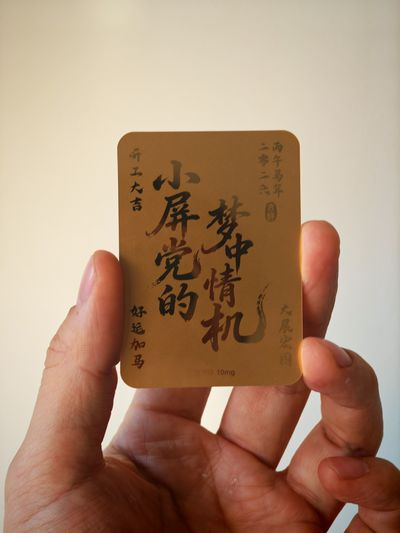 开工大吉
丙午马年
二零二六
小屏党的
梦中情机
好运加马
大展宏图
10mg